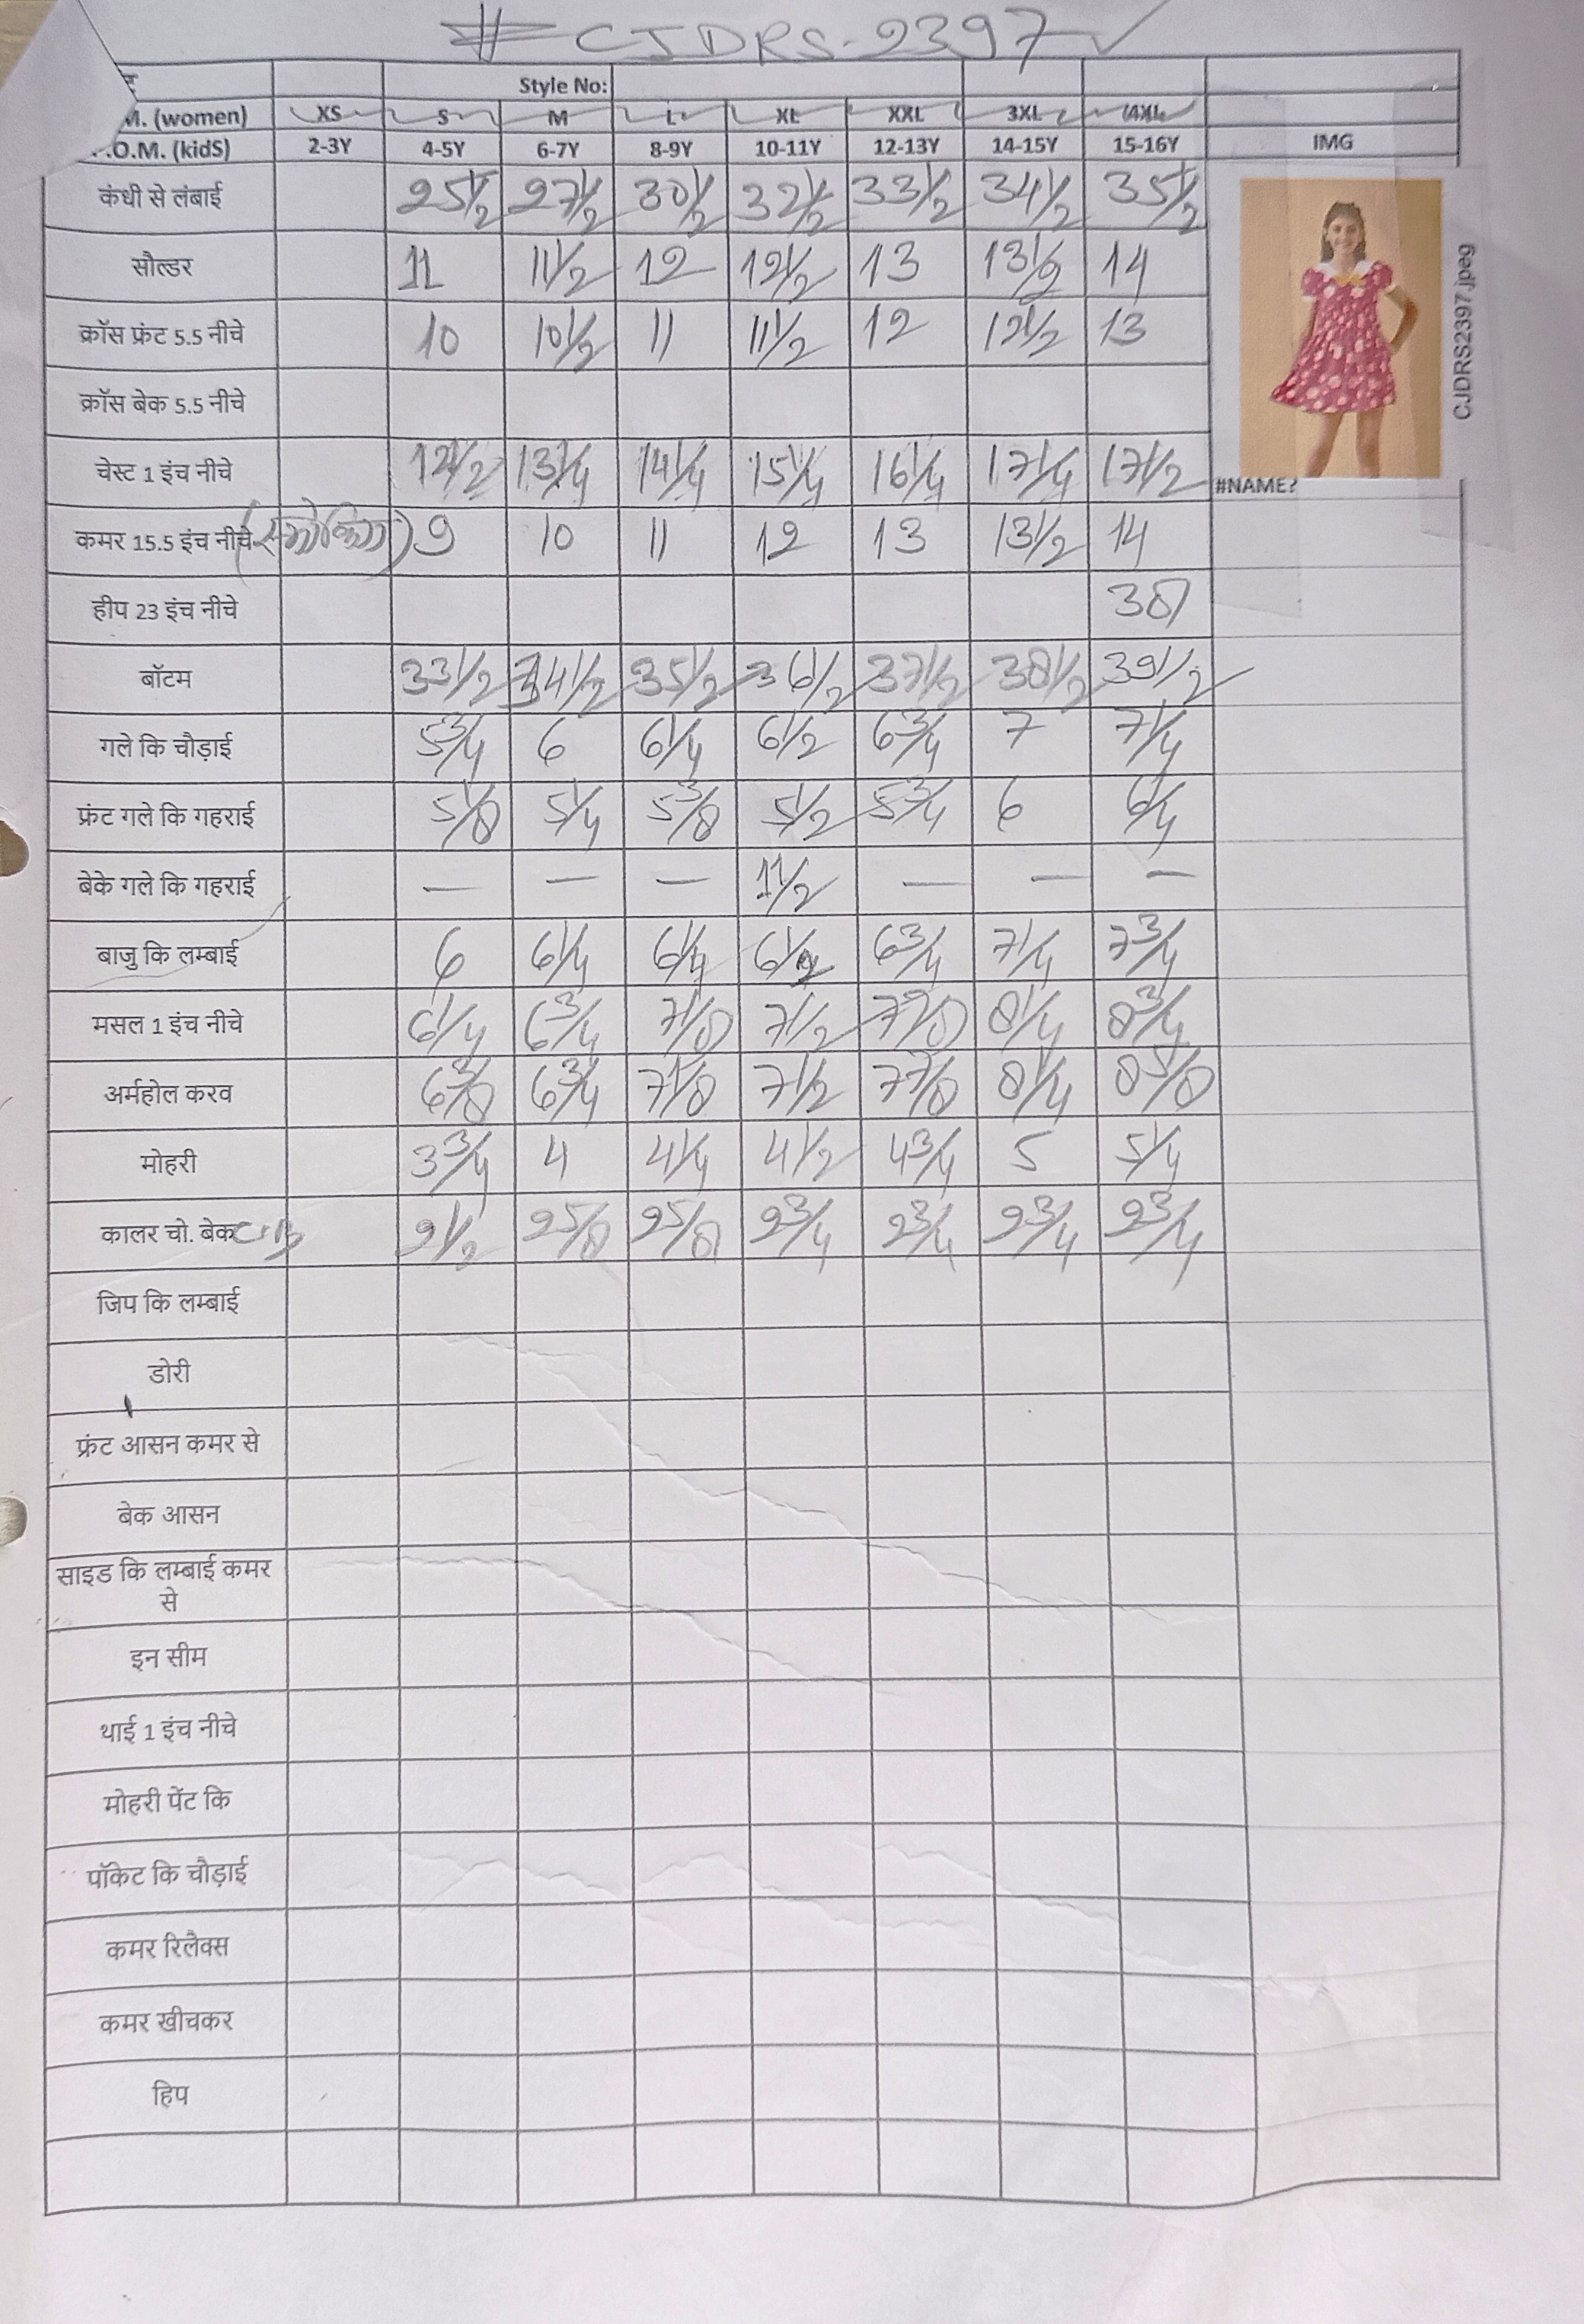 #CJDRS-2397
Style No:
M. (women) XS S M L XL XXL 3XL 4XL
.O.M. (kidS) 2-3Y 4-5Y 6-7Y 8-9Y 10-11Y 12-13Y 14-15Y 15-16Y IMG
कंधी से लंबाई 25 1/2 27 1/2 30 1/2 32 1/2 33 1/2 34 1/2 35 1/2
सौल्डर 11 11 1/2 12 12 1/2 13 13 1/2 14
क्रॉस फ्रंट 5.5 नीचे 10 10 1/2 11 11 1/2 12 12 1/2 13
क्रॉस बेक 5.5 नीचे
CJDRS2397.jpeg
चेस्ट 1 इंच नीचे 12 1/2 13 1/4 14 1/4 15 1/4 16 1/4 17 1/4 17 1/2
#NAME?
कमर 15.5 इंच नीचे (स्मोकिंग) 9 10 11 12 13 13 1/2 14
हीप 23 इंच नीचे 38
बॉटम 33 1/2 34 1/2 35 1/2 36 1/2 37 1/2 38 1/2 39 1/2
गले कि चौड़ाई 5 3/4 6 6 1/4 6 1/2 6 3/4 7 7 1/4
फ्रंट गले कि गहराई 5 1/8 5 1/4 5 3/8 5 1/2 5 3/4 6 6 1/4
बेके गले कि गहराई — — — 1 1/2 — — —
बाजु कि लम्बाई 6 6 1/4 6 1/4 6 1/2 6 3/4 7 1/4 7 3/4
मसल 1 इंच नीचे 6 1/4 6 3/4 7 1/8 7 1/2 7 7/8 8 1/4 8 3/4
अर्महोल करव 6 3/8 6 3/4 7 1/8 7 1/2 7 7/8 8 1/4 8 5/8
मोहरी 3 3/4 4 4 1/4 4 1/2 4 3/4 5 5 1/4
कालर चो. बेक CB 2 1/2 2 5/8 2 5/8 2 3/4 2 3/4 2 3/4 2 3/4
जिप कि लम्बाई
डोरी
फ्रंट आसन कमर से
बेक आसन
साइड कि लम्बाई कमर
से
इन सीम
थाई 1 इंच नीचे
मोहरी पेंट कि
पॉकेट कि चौड़ाई
कमर रिलैक्स
कमर खीचकर
हिप